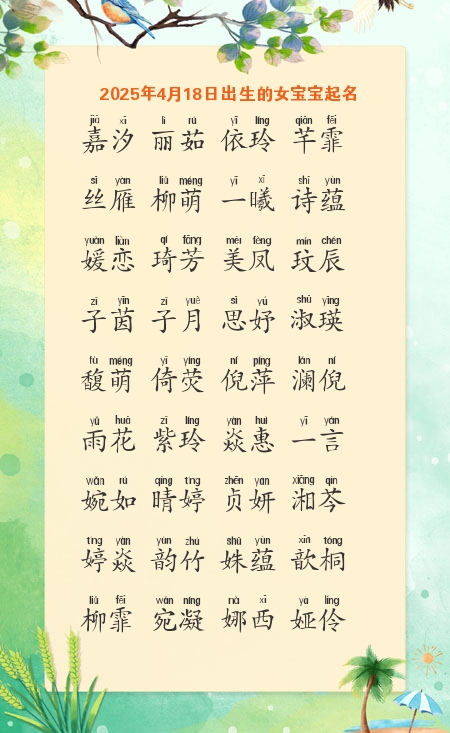 2025年4月18日出生的女宝宝起名
jiā xī lì rú yī líng qiān fēi
嘉汐 丽茹 依玲 芊霏
sī yàn liǔ méng yī xī shī yùn
丝雁 柳萌 一曦 诗蕴
yuàn liàn qí fāng měi fèng mín chén
媛恋 琦芳 美凤 玟辰
zǐ yīn zǐ yuè sī yú shū yīng
子茵 子月 思妤 淑瑛
fù méng yǐ yíng ní píng lán ní
馥萌 倚荧 倪萍 澜倪
yǔ huā zǐ líng yàn huì yī yán
雨花 紫玲 焱惠 一言
wǎn rú qíng tíng zhēn yán xiāng qín
婉如 晴婷 贞妍 湘芩
tíng yàn yùn zhú shū yùn xīn tóng
婷焱 韵竹 姝蕴 歆桐
liǔ fēi wǎn níng nà xī yà líng
柳霏 宛凝 娜西 娅伶